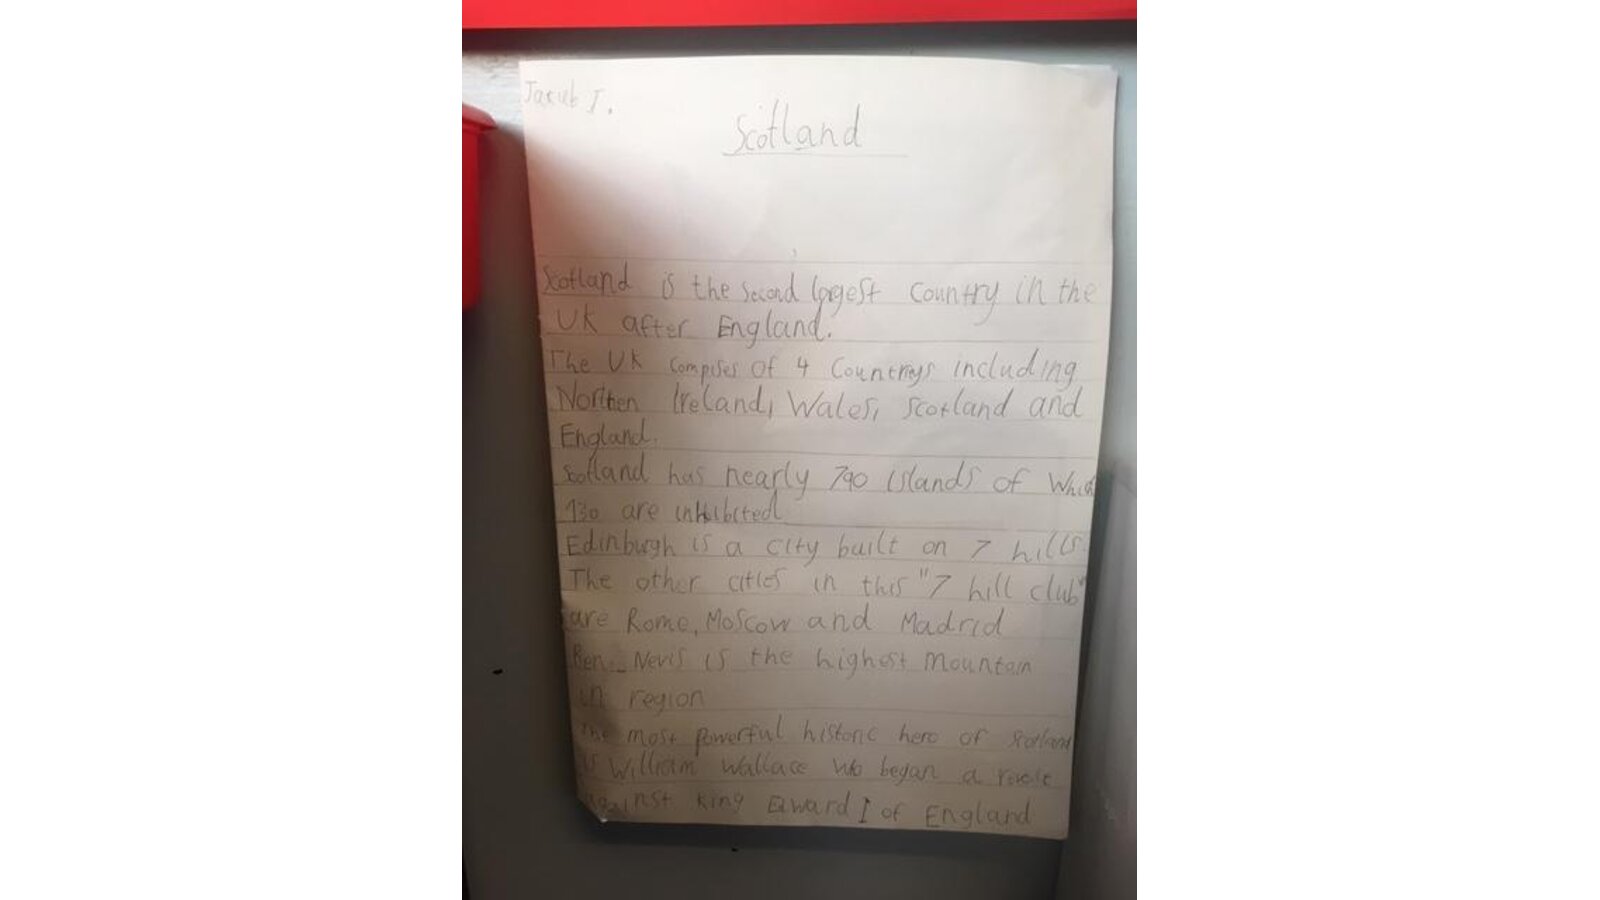 Jakub I.
Scotland
Scotland is the second largest country in the
UK after England.
The UK compises of 4 Countrys including
Northen Ireland, Wales, Scotland and
England.
Scotland has nearly 790 islands of Which
130 are inhibited
Edinburgh is a city built on 7 hills.
The other cities in this "7 hill club"
are Rome, Moscow and Madrid
Ben Nevis is the highest Mountain
in region
The most powerful historic hero of Scotland
is William Wallace who began a
against King Edward I of England